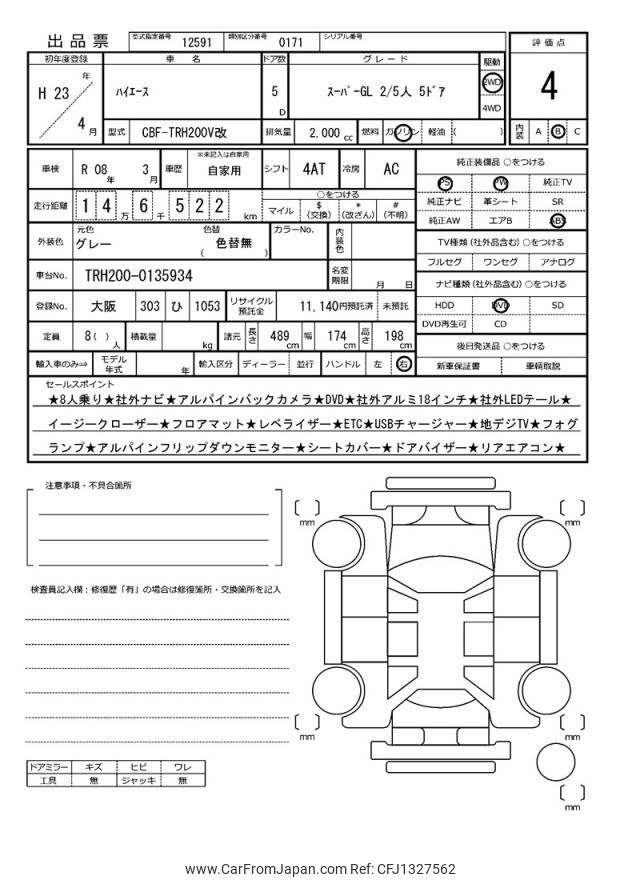 出品票 型式指定番号 12591 類別区分番号 0171 シリアル番号
評価点
4
内装 A B C
初年度登録 車 名 ドア数 グレード 駆動
H 23 年 4 月 ハイエース 5 D スーパーGL 2/5人 5ドア 2WD 4WD
型式 CBF-TRH200V改 排気量 2,000 cc 燃料 ガソリン 軽油 ( )
車検 R 08 年 3 月 車歴 ※未記入は自家用 自家用 シフト 4AT 冷房 AC
走行距離 1 4 万 6 千 5 2 2 km
○をつける
マイル $ (交換) * (改ざん) # (不明)
外装色 元色 グレー 色替 色替無 ( ) カラーNo. 内装色
車台No. TRH200-0135934 名変期限 月 日
登録No. 大阪 303 ひ 1053 リサイクル預託金 11,140円預託済 未預託
定員 8( ) 人 積載量 kg 諸元 長さ 489 cm 幅 174 cm 高さ 198 cm
輸入車のみ⇒ モデル年式 年 輸入区分 ディーラー 並行 ハンドル 左 右
純正装備品 ○をつける
PS PW 純正TV
純正ナビ 革シート SR
純正AW エアB ABS
TV種類 (社外品含む) ○をつける
フルセグ ワンセグ アナログ
ナビ種類 (社外品含む) ○をつける
HDD DVD SD
DVD再生可 CD
後日発送品 ○をつける
新車保証書 車輌取説
セールスポイント
★8人乗り★社外ナビ★アルパインバックカメラ★DVD★社外アルミ18インチ★社外LEDテール★
イージークローザー★フロアマット★レベライザー★ETC★USBチャージャー★地デジTV★フォグ
ランプ★アルパインフリップダウンモニター★シートカバー★ドアバイザー★リアエアコン★
注意事項・不具合箇所
検査員記入欄：修復歴「有」の場合は修復箇所・交換箇所を記入
ドアミラー キズ ヒビ ワレ
工具 無 ジャッキ 無
[ ] mm
[ ] mm
[ ] mm
[ ] mm
[ ] mm
www.CarFromJapan.com Ref: CFJ1327562